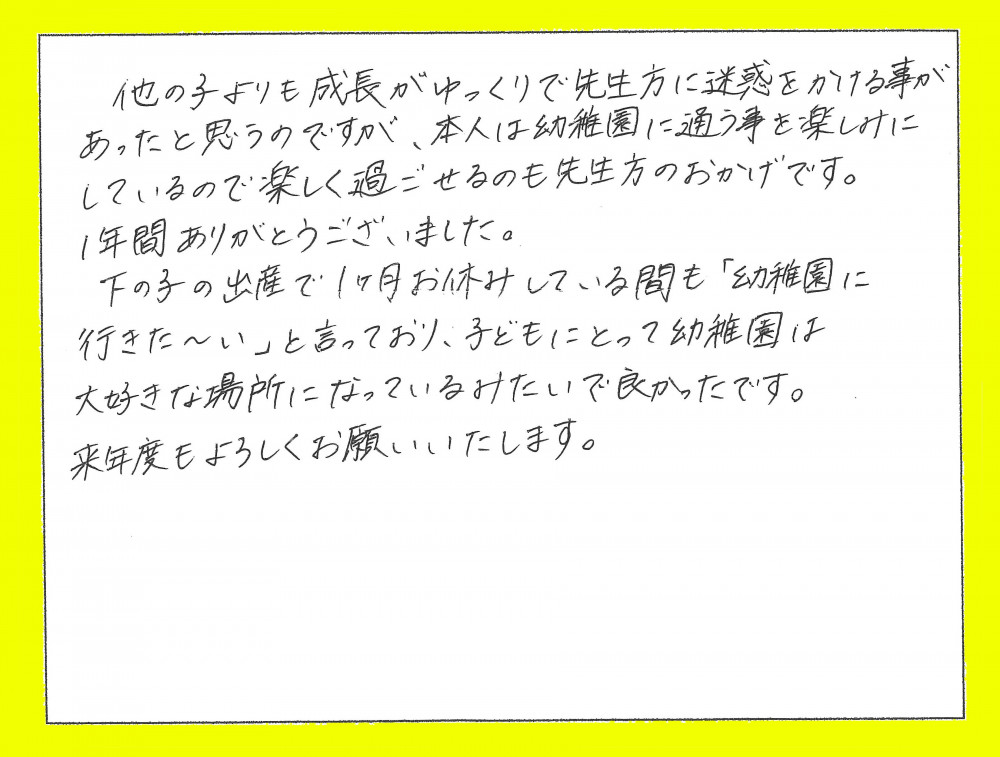 他の子よりも成長がゆっくりで先生方に迷惑をかける事が
あったと思うのですが、本人は幼稚園に通う事を楽しみに
しているので楽しく過ごせるのも先生方のおかげです。
1年間ありがとうございました。
下の子の出産で1ヶ月お休みしている間も「幼稚園に
行きた〜い」と言っており、子どもにとって幼稚園は
大好きな場所になっているみたいで良かったです。
来年度もよろしくお願いいたします。